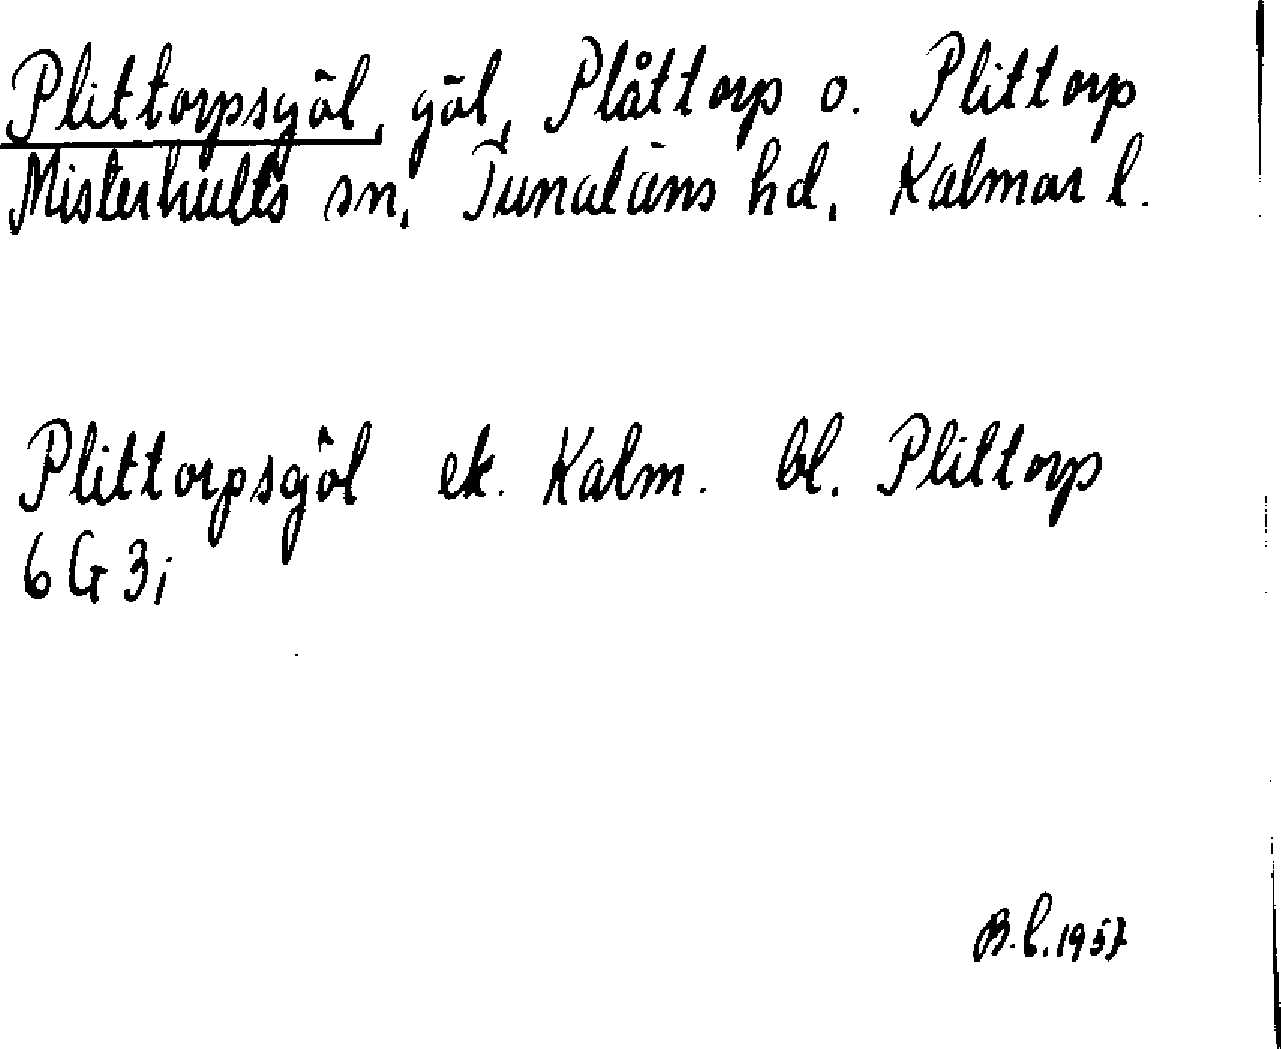 Plittorpsgöl, göl, Plåttorp o. Plittorp
Misterhults sn, Tunaläns hd, Kalmar l.
Plittorpsgöl ek. Kalm. bl. Plittorp
6 G 3i
B.L. 1957